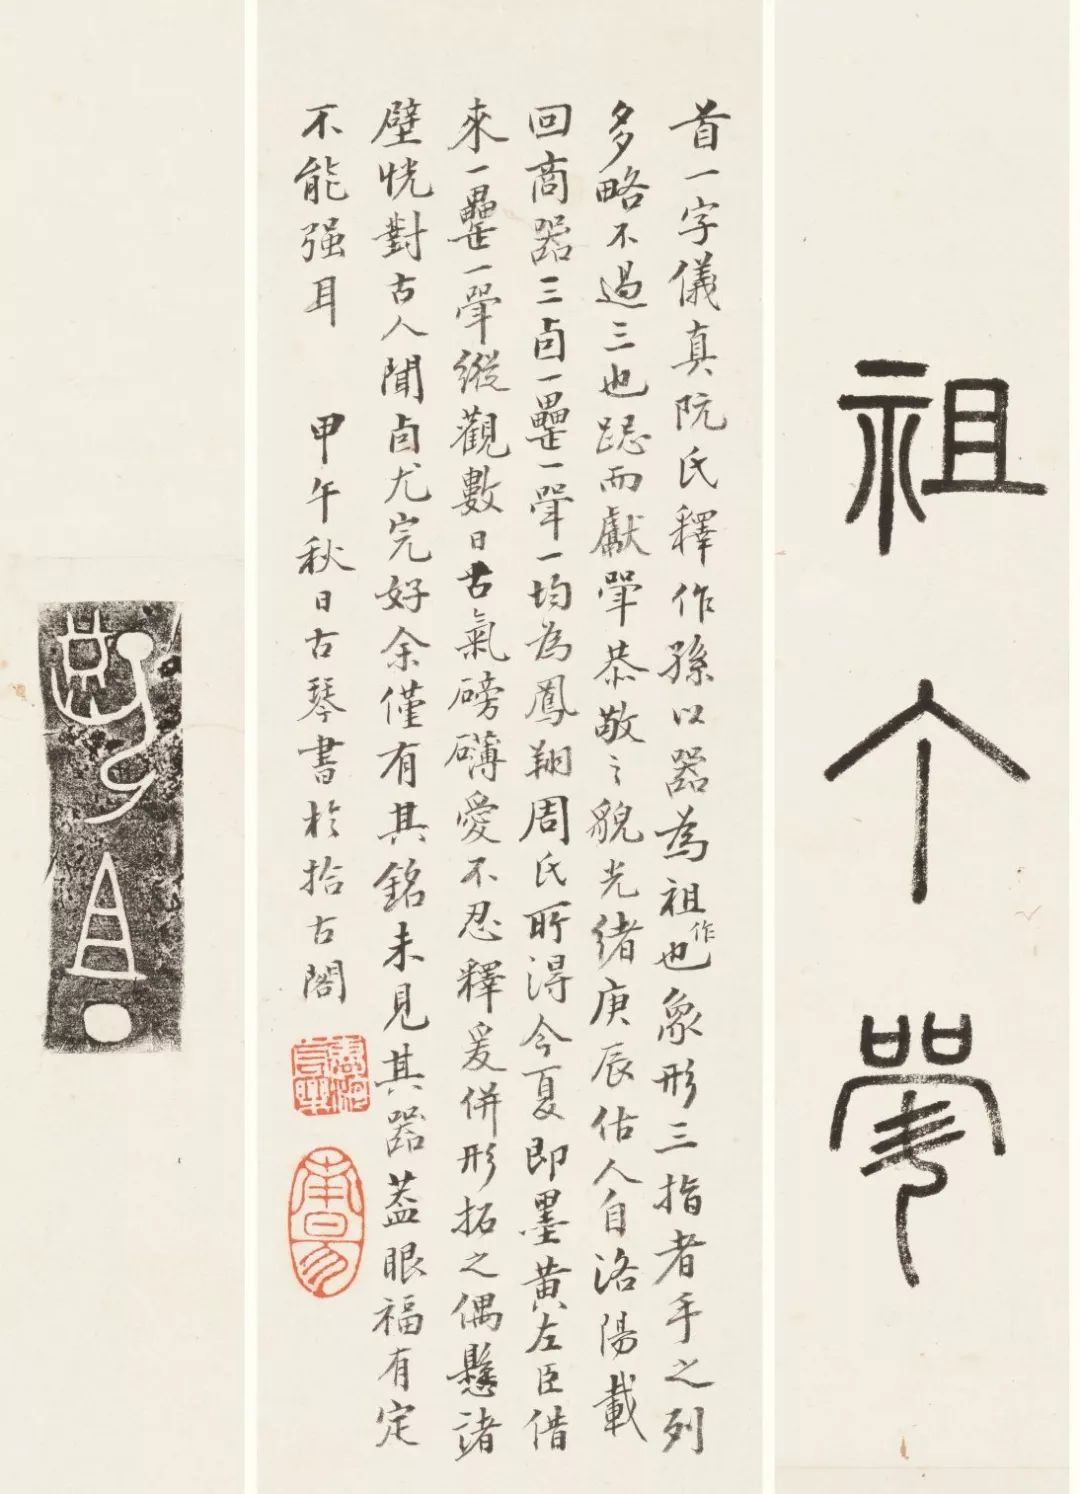 祖丁斝
首一字儀真阮氏釋作孫以器為祖作也象形三指者手之列
多略不過三也跽而獻斝恭敬之貌光緒庚辰估人自洛陽載
回商器三卣一罍一斝一均為鳳翔周氏所得今夏即墨黃左臣借
來一罍一斝縱觀數日古氣磅礴愛不忍釋爰併形拓之偶懸諸
壁恍對古人聞卣尤完好余僅有其銘未見其器蓋眼福有定
不能强耳 甲午秋日古琴書於拾古閣